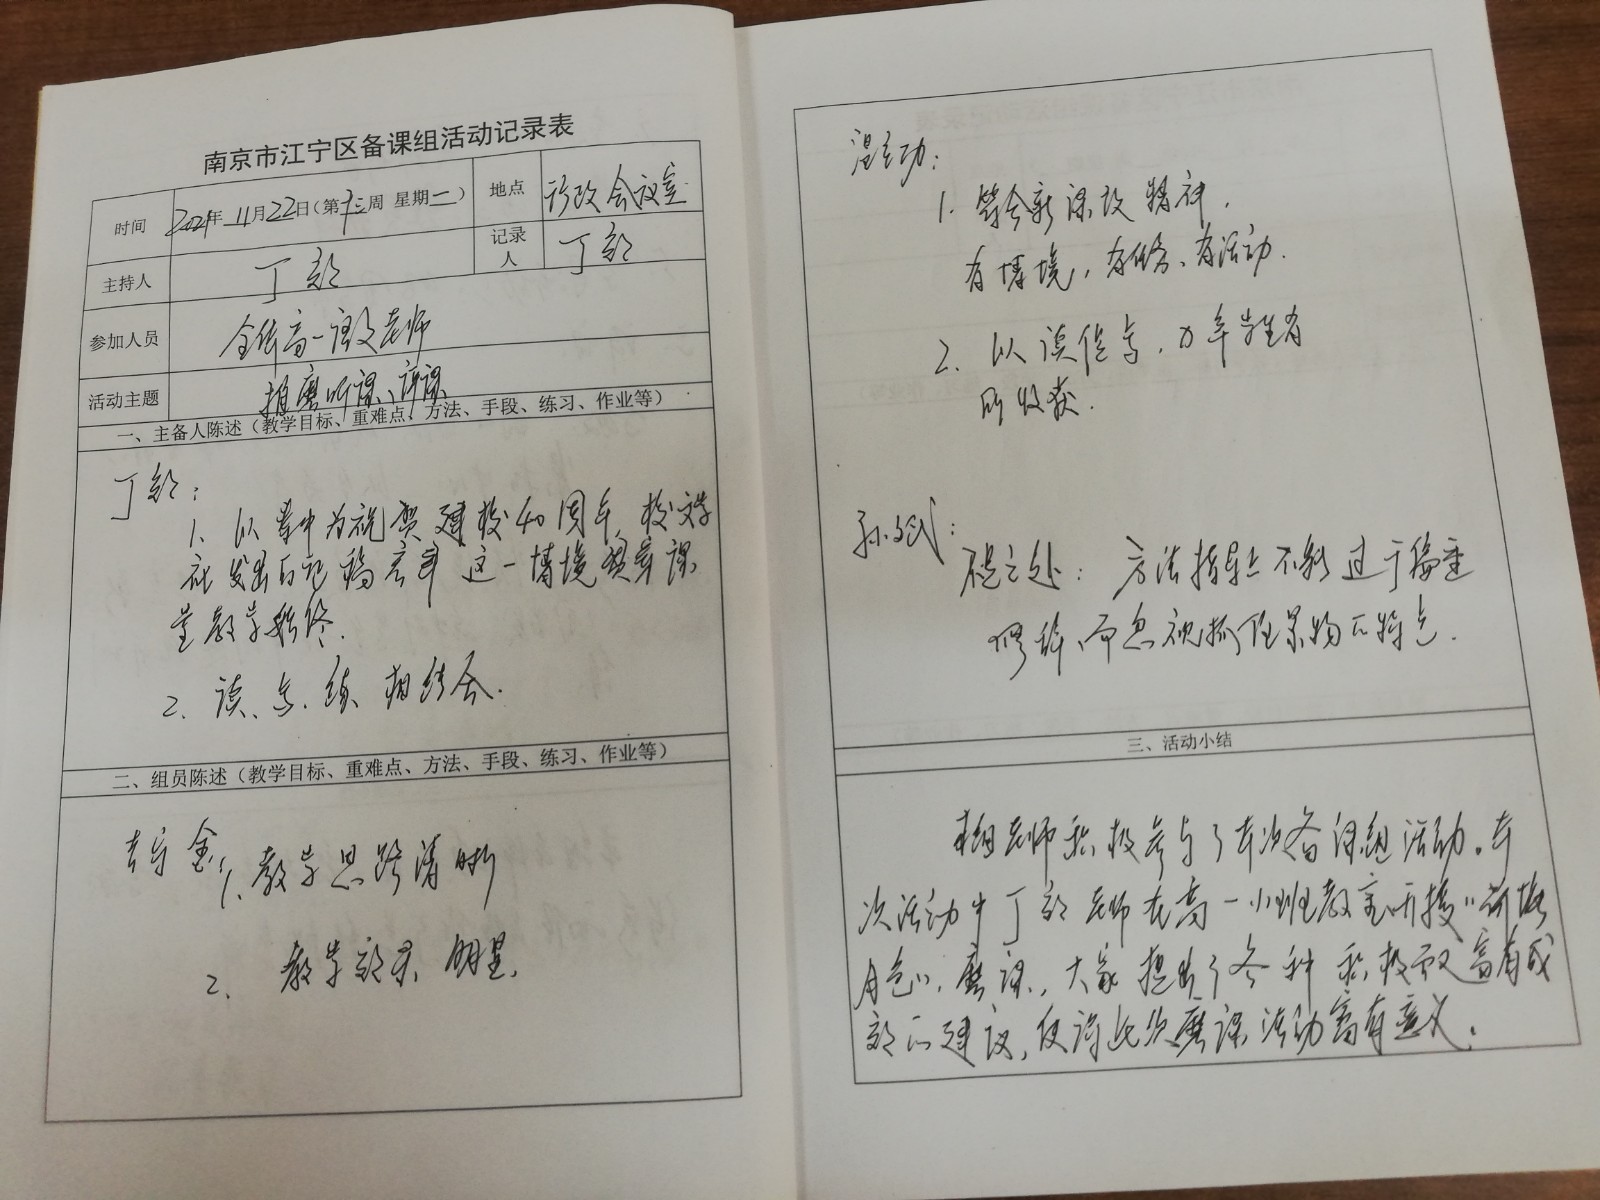 南京市江宁区备课组活动记录表
时间 2021年 11月22日(第十三周 星期一) 地点 行政会议室
主持人 丁 记录人 丁
参加人员 全体高一语文老师
活动主题 推磨听课、评课
一、主备人陈述(教学目标、重难点、方法、手段、练习、作业等)
丁
1、以 为祝贺建校40周年,校文学
社发出的 稿 这一情境贯穿课
堂教学始终.
2、读、写、练相结合.
二、组员陈述(教学目标、重难点、方法、手段、练习、作业等)
1、教学思路清晰
2、教学效果明显.
1、符合新课改精神.
有情境,有任务、有活动.
2、以读促写,力争学生有
所收获.
孙斌:
不足之处:方法指导上不能过于偏重
修辞、而忽视抓住景物的特点.
三、活动小结
本组老师积极参与了本次备课组活动。本
次活动中丁 老师在高一小班教室开授“荷塘
月色”磨课,大家提出了各种积极而又富有成
效的建议,使得此次磨课活动富有意义。